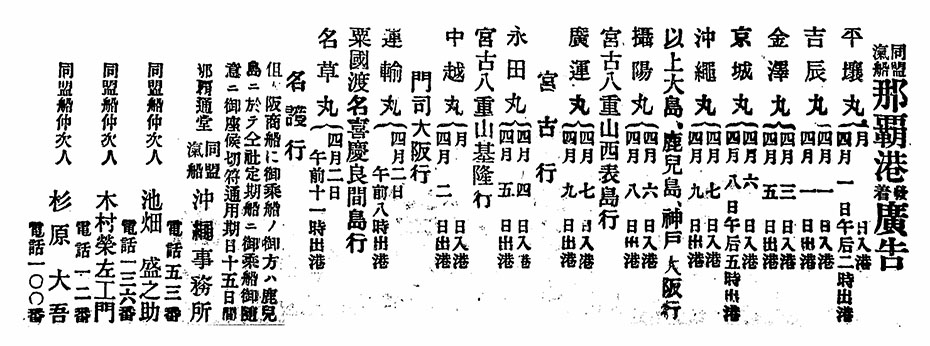 同盟汽船 那覇港發着廣告
平壤丸 月 日入港
四月一日午后二時出港
吉辰丸 四月一日入港
四月一日出港
金澤丸 四月三日入港
四月五日出港
京城丸 四月六日入港
四月八日午后五時出港
沖繩丸 四月七日入港
四月九日出港
以上大島、鹿兒島、神戸、大阪行
攝陽丸 四月六日入港
四月八日出港
宮古八重山西表島行
廣運丸 四月七日入港
四月九日出港
宮古行
永田丸 四月四日入港
四月五日出港
宮古八重山基隆行
中越丸 月 日入港
四月二日出港
門司大阪行
運輸丸 四月二日
午前八時出港
粟國渡名喜慶良間島行
名草丸 四月二日
午前十一時出港
名護行
但阪商船に御乘船ノ御方ハ鹿兒
島ニ於テ仝社定期船ニ御乘船御隨
意ニ御座候切符通用期日十五日間
那覇通堂 同盟汽船 沖繩事務所
電話五三番
同盟船仲次人 池畑盛之助
電話一三六番
同盟船仲次人 木村榮左工門
電話一二番
同盟船仲次人 杉原大吾
電話一〇〇番